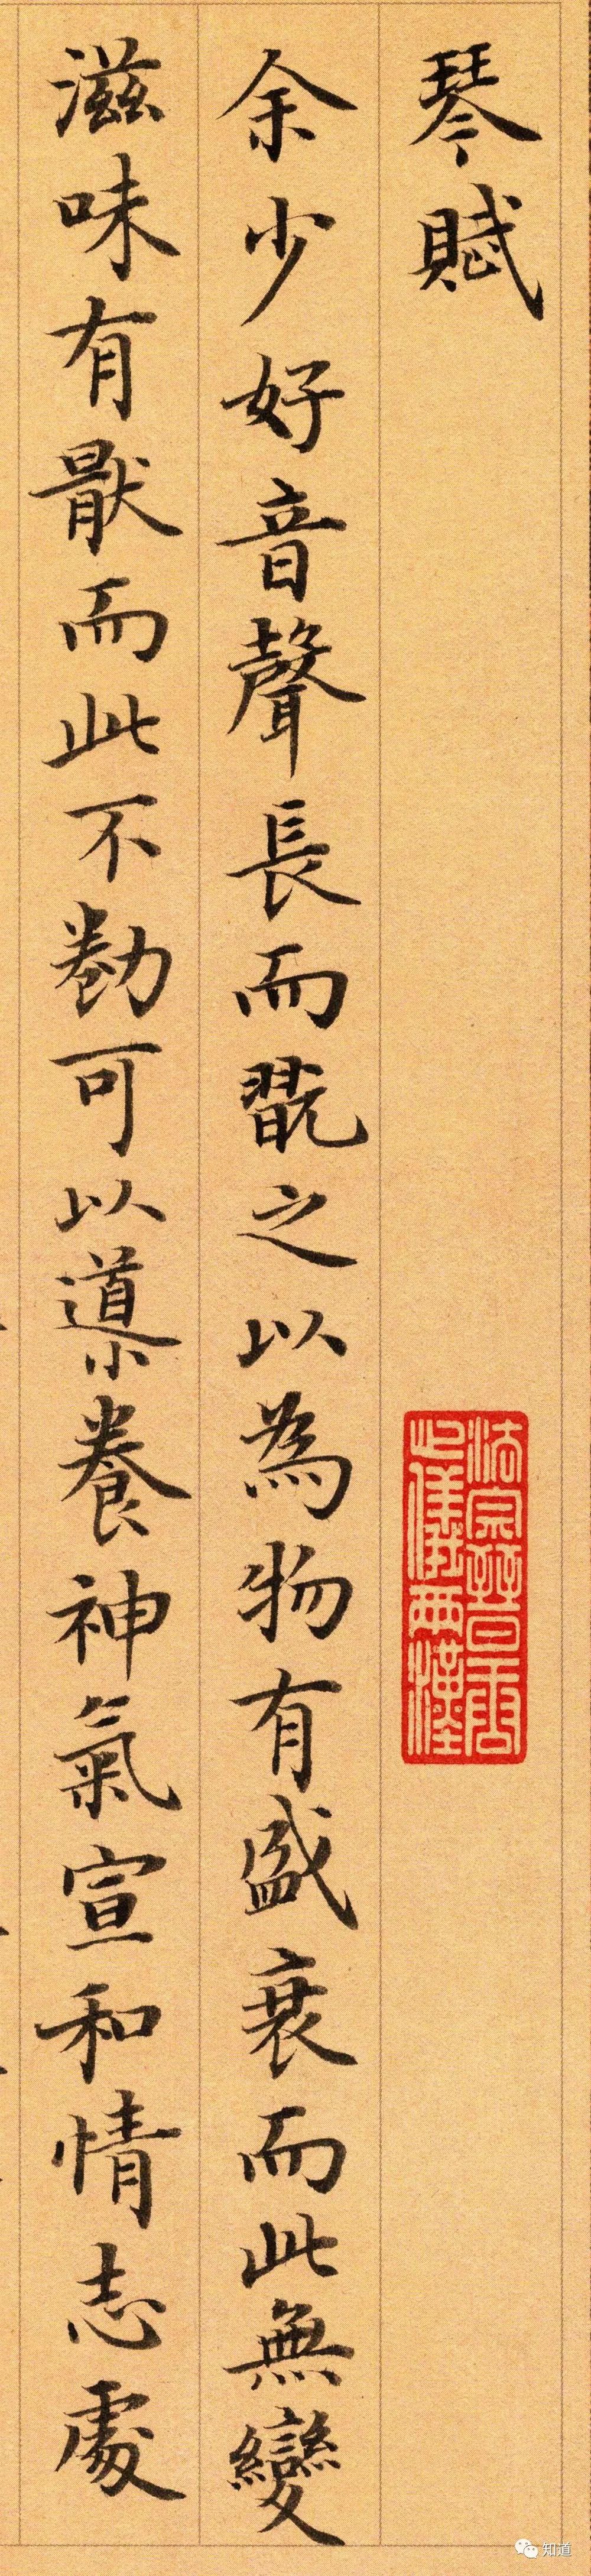 琴賦
法宗晉唐
心儀兩漢
余少好音聲長而翫之以為物有盛衰而此無變
滋味有猒而此不勌可以導養神氣宣和情志處
知道